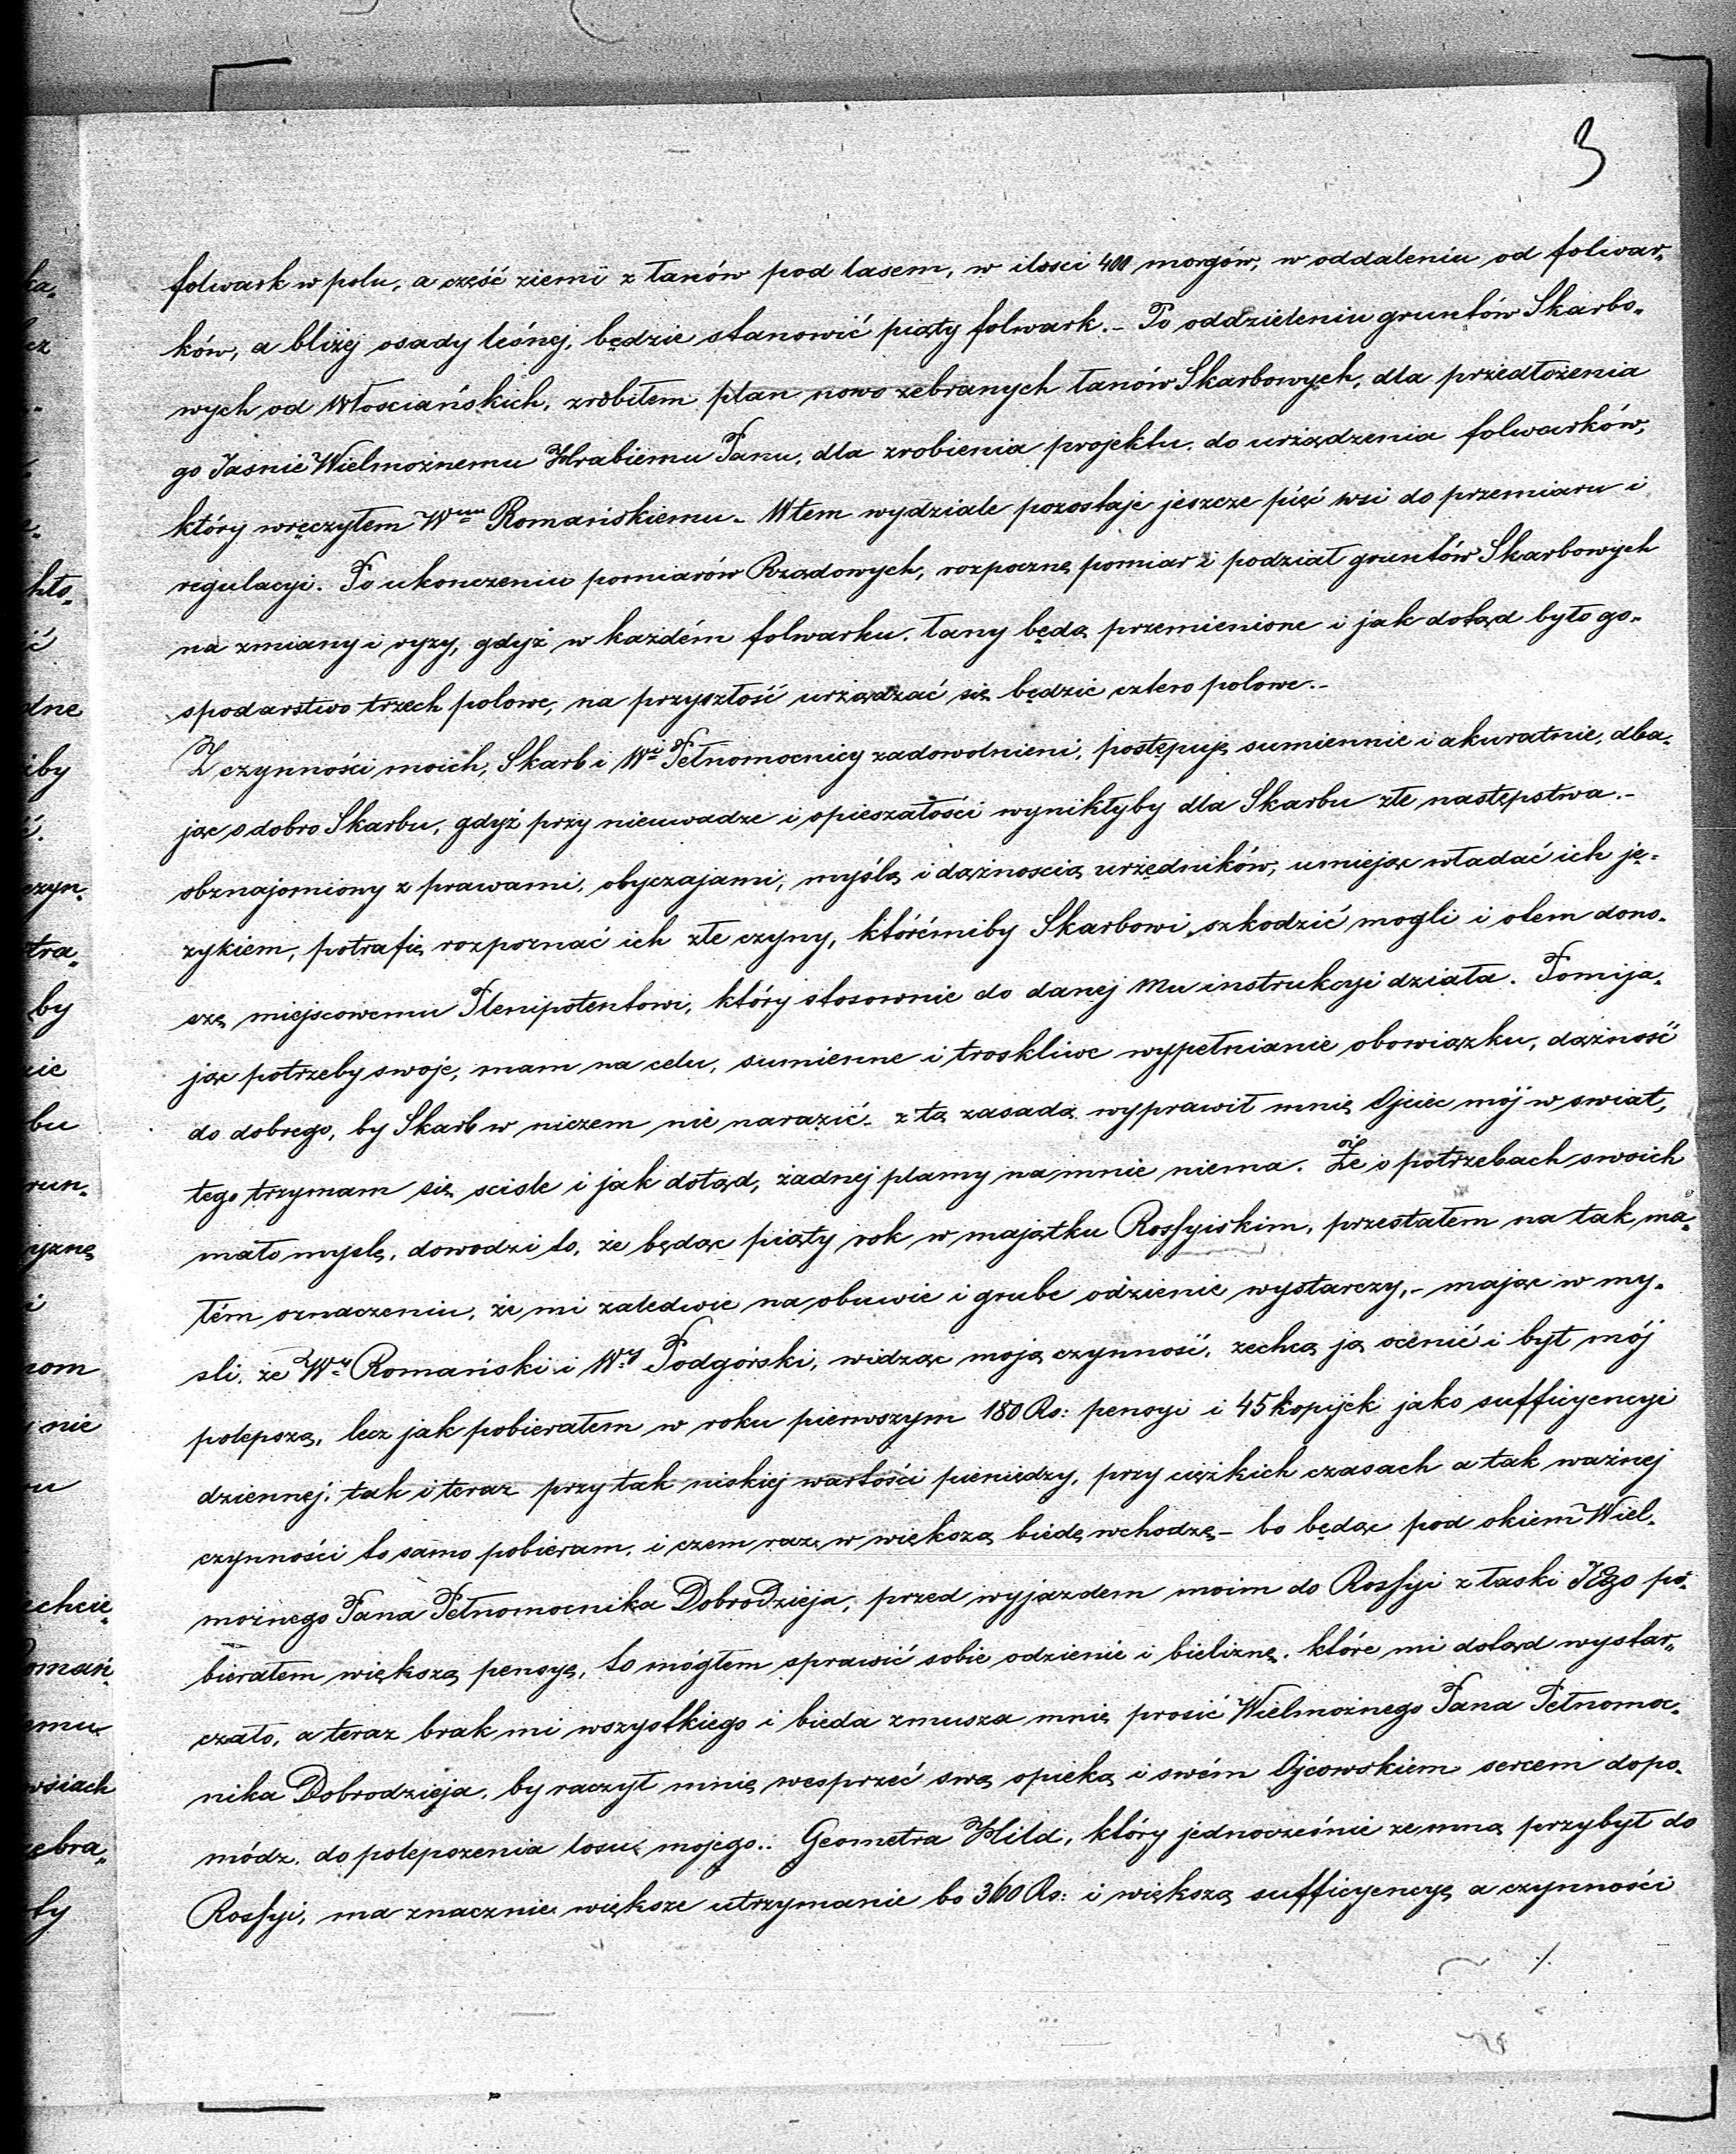 3
folwark w polu, a część ziemi z łanów pod lasem, w ilosci 400 morgów, w oddaleniu od folwar„
ków, a bliżej osady leśnej, będzie stanowić piąty folwark.– Po oddzieleniu gruntów Skarbo„
wych od Włosciańskich, zrobiłem plan nowo zebranych łanów Skarbowych, dla przedłożenia
go Jasnie Wielmożnemu Hrabiemu Panu, dla zrobienia projektu, do urządzenia folwarków,
który wręczyłem Wmu Romańskiemu.– W tem wydziale pozostaje jeszcze pięć wsi do przemiaru i
regulacyi. Po ukonczeniu pomiarów Rządowych, rozpocznę pomiar i podział gruntów Skarbowych
na zmiany i ryzy, gdyż w każdém folwarku, łany będą przemienione i jak dotąd było go„
spodarstwo trzech polowe, na przyszłość urządzać się będzie cztero polowe.–
Z czynności moich, Skarb i Wi Pełnomocnicy zadowolnieni, postępuję sumiennie i akuratnie, dba„
jąc o dobro Skarbu, gdyż przy nieuwadze i opieszałości wynikłyby dla Skarbu złe następstwa.–
obznajomiony z prawami, obyczajami, myślą i dążnoscią urzędników, umiejąc władać ich ję„
zykiem, potrafię rozpoznać ich złe czyny, którémiby Skarbowi szkodzić mogli i otem dono„
szę miejscowemu Plenipotentowi, który stosownie do danej mu instrukcyi działa. Pomija„
jąc potrzeby swoje, mam na celu, sumienne i troskliwe wypełnianie obowiązku, dążność
do dobrego, by Skarb w niczem nie narazić.– z tą zasadą wyprawił mnię Ojciec mój w swiat,
tego trzymam się scisle i jak dotąd, żadnej plamy na mnie niema. Że o potrzebach swoich
mało myslę, dowodzi to, że będąc piąty rok w majątku Rossyiskim, przestałem na tak ma„
łém oznaczeniu, że mi zaledwie na obuwie i grube odzienie wystarczy,– mając w my„
sli, że Wy Romański i Wy Podgórski, widząc moją czynność, zechcą ją ocenić i byt mój
polepszą, lecz jak pobierałem w roku pierwszym 180 Rs: pensyi i 45 kopijek jako sufficyencyi
dziennej, tak i teraz przy tak niskiej wartości pieniędzy, przy ciężkich czasach a tak ważnej
czynności to samo pobieram, i czem raz w większą biedę wchodzę – bo będąc pod okiem Wiel„
możnego Pana Pełnomocnika DobroDzieja, przed wyjazdem moim do Rossyi z łaski JEgo po„
bierałem większą pensyę, to mógłem sprawić sobie odzienie i bieliznę, które mi dotąd wystar„
czało, a teraz brak mi wszystkiego i bieda zmusza mnię prosić Wielmożnego Pana Pełnomoc„
nika Dobrodzieja, by raczył mnię wesprzeć swą opieką i swém Ojcowskiem sercem dopo„
módz, do polepszenia losu mojego.. Geometra Hild, który jednocześnie zemną przybył do
Rossyi, ma znacznie większe utrzymanie bo 360 Rs: i większą sufficyencyę a czynności
./.